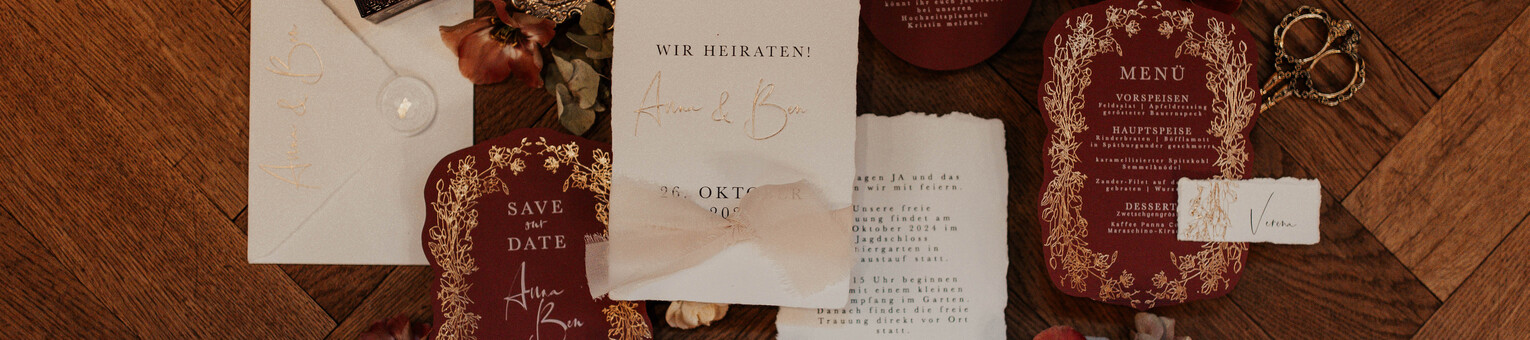 Anna & Ben
SAVE
our
DATE
Anna
Ben
WIR HEIRATEN!
Anna & Ben
26. OKTOBER
könnt ihr euch
bei unseren
Hochzeitsplanerin
Kristin melden.
sagen JA und das
wir mit feiern.
Unsere freie
findet am
Oktober 2024 im
Jagdschloss
in
statt.
15 Uhr beginnen
mit einem kleinen
im Garten.
Danach findet die freie
Trauung direkt vor Ort
statt.
MENÜ
VORSPEISEN
Feldsalat | Apfeldressing
gerösteter Bauernspeck
HAUPTSPEISE
Rinderbraten | Böfflamott
in Spätburgunder geschmort
karamellisierter Spitzkohl
Semmelknödel
Zander-Filet auf
gebraten |
DESSERT
Kaffee Panna
Maraschino-
Verena